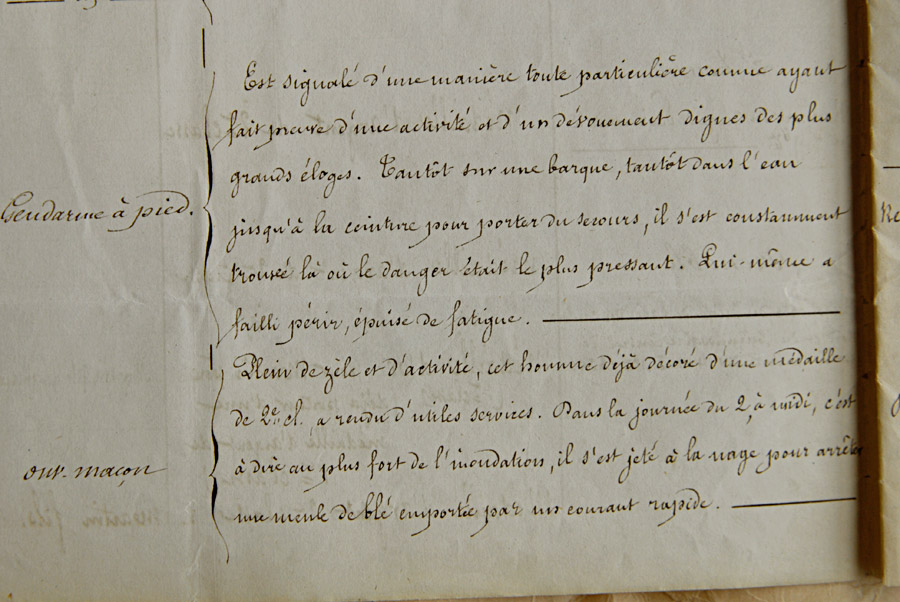 Est signalé d'une manière toute particulière comme ayant
fait preuve d'une activité et d'un dévouement dignes des plus
grands éloges. Tantôt sur une barque, tantôt dans l'eau
Gendarme à pied.
jusqu'à la ceinture pour porter du secours, il s'est constamment
trouvé là où le danger était le plus pressant. Lui-même a
failli périr, épuisé de fatigue.
Plein de zèle et d'activité, cet homme déjà décoré d'une médaille
de 2e. cl. a rendu d'utiles services. Dans la journée du 2, à midi, c'est
ouv. maçon
à dire au plus fort de l'inondation, il s'est jeté à la nage pour arrêter
une meule de blé emportée par un courant rapide.
Re